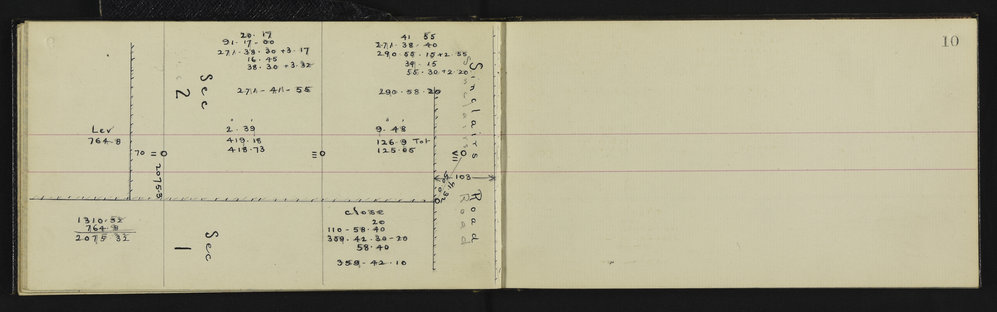 20. 17
91. 17 - 00
271 - 38 - 30 + 3. 17
16. 45
38. 30 + 3. 32
271 - 41 - 55
Sec
2
41 55
271 - 38 - 40
290. 55. 15 + 2. 55
39. 15
55. 30 + 2. 20
290. 58. 20
Sinclairs Road
10
Lev
764.8
2. 39
419. 18
418. 73
9. 48
126. 9 Tot
125. 65
70
II
III
VII
2075.3
103
1310. 53
764. 8
2075 33
Sec
1
close
20
110 - 58. 40
359. 42. 30 - 20
58. 40
359 - 42. 10